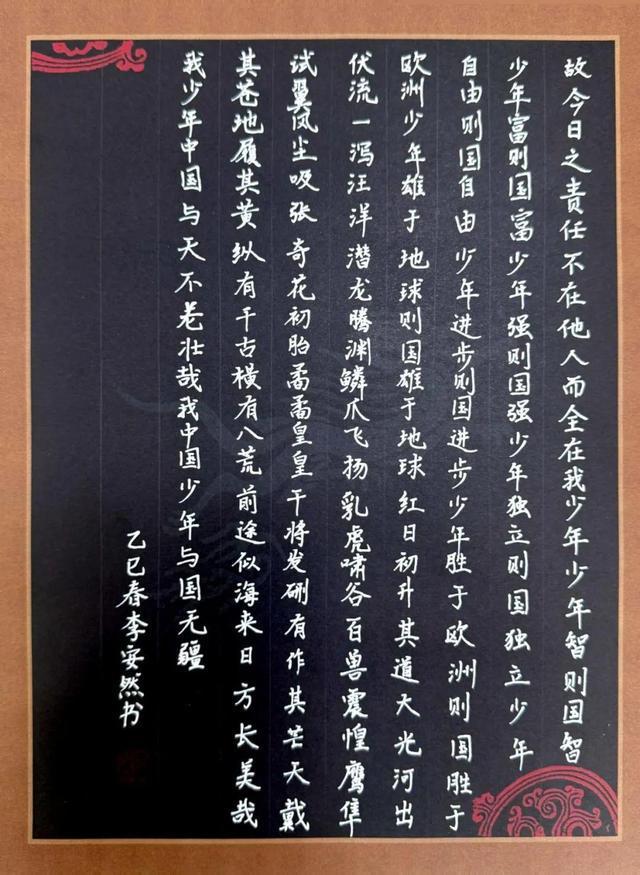 故今日之责任不在他人而全在我少年少年智则国智
少年富则国富少年强则国强少年独立则国独立少年
自由则国自由少年进步则国进步少年胜于欧洲则国胜于
欧洲少年雄于地球则国雄于地球红日初升其道大光河出
伏流一泻汪洋潜龙腾渊鳞爪飞扬乳虎啸谷百兽震惶鹰隼
试翼风尘吸张奇花初胎矞矞皇皇干将发硎有作其芒天戴
其苍地履其黄纵有千古横有八荒前途似海来日方长美哉
我少年中国与天不老壮哉我中国少年与国无疆
乙巳春李安然书